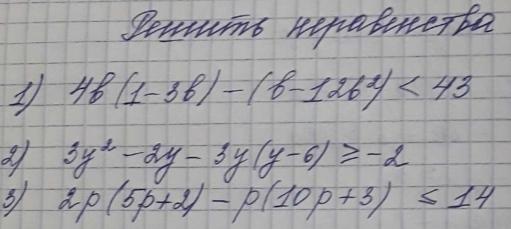 Решить неравенства
1) 4в(1-3в)-(в-12в²)<43
2) 3y²-2y-3y(y-6)≥-2
3) 2p(5p+2)-p(10p+3)≤14